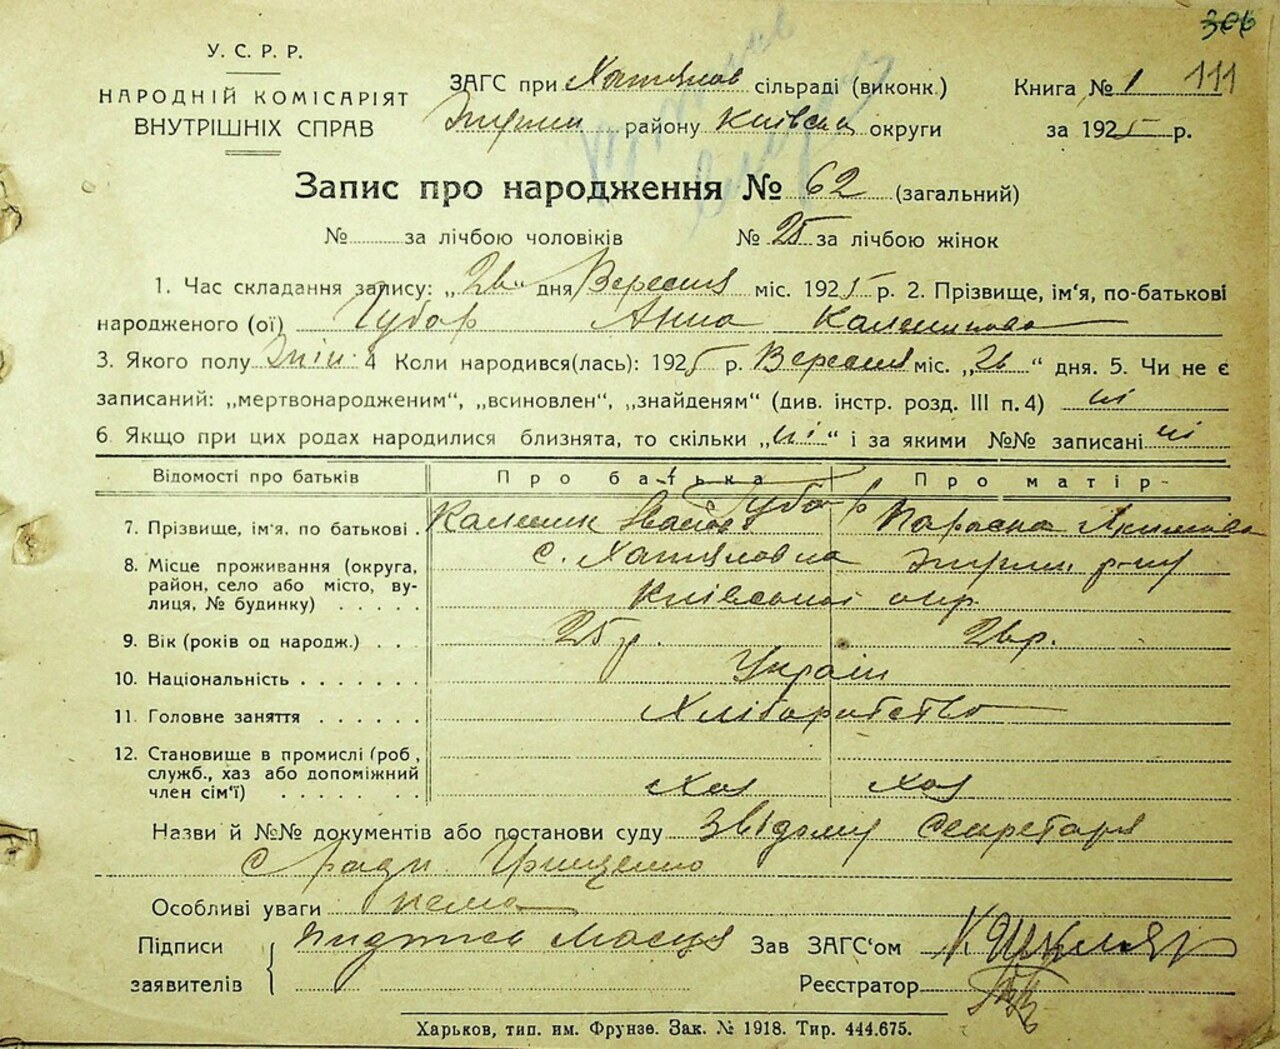 306
У. С. Р. Р.
НАРОДНІЙ КОМІСАРІЯТ
ВНУТРІШНІХ СПРАВ
ЗАГС при Хатялов сільраді (виконк.)
району Київськ округи
Книга № 1 111
за 1925 р.
Запис про народження № 62 (загальний)
№ за лічбою чоловіків № 25 за лічбою жінок
1. Час складання запису: „26“ дня Вересня міс. 1925 р. 2. Прізвище, ім'я, по-батькові
народженого (ої) Губар Анна Калеников
3. Якого полу Жін. 4 Коли народився(лась): 1925 р. Вересня міс. „26“ дня. 5. Чи не є
записаний: „мертвонародженим“, „всиновлен“, „знайденям“ (див. інстр. розд. III п. 4) ні
6 Якщо при цих родах народилися близнята, то скільки „ні“ і за якими №№ записані ні
Відомості про батьків Про батька Про матір
7. Прізвище, ім'я, по батькові . Каленик Іванов Губар Параска Якимова
8. Місце проживання (округа, район, село або місто, вулиця, № будинку) с. Хатяловка р-ну
Київської окр.
9. Вік (років од народж.) . . . 25 р. 26 р.
10. Національність . . . . . . . Україн
11. Головне заняття . . . . . . Хліборобство
12. Становище в промислі (роб, служб., хаз або допоміжний член сім'ї) . . . . . . Хаз Хаз
Назви й №№ документів або постанови суду З відому Секретаря
с ради Грищенко
Особливі уваги нема
Підписи
заявителів
Підпись Зав ЗАГС'ом
Реєстратор
Харьков, тип. им. Фрунзе. Зак. № 1918. Тир. 444.675.